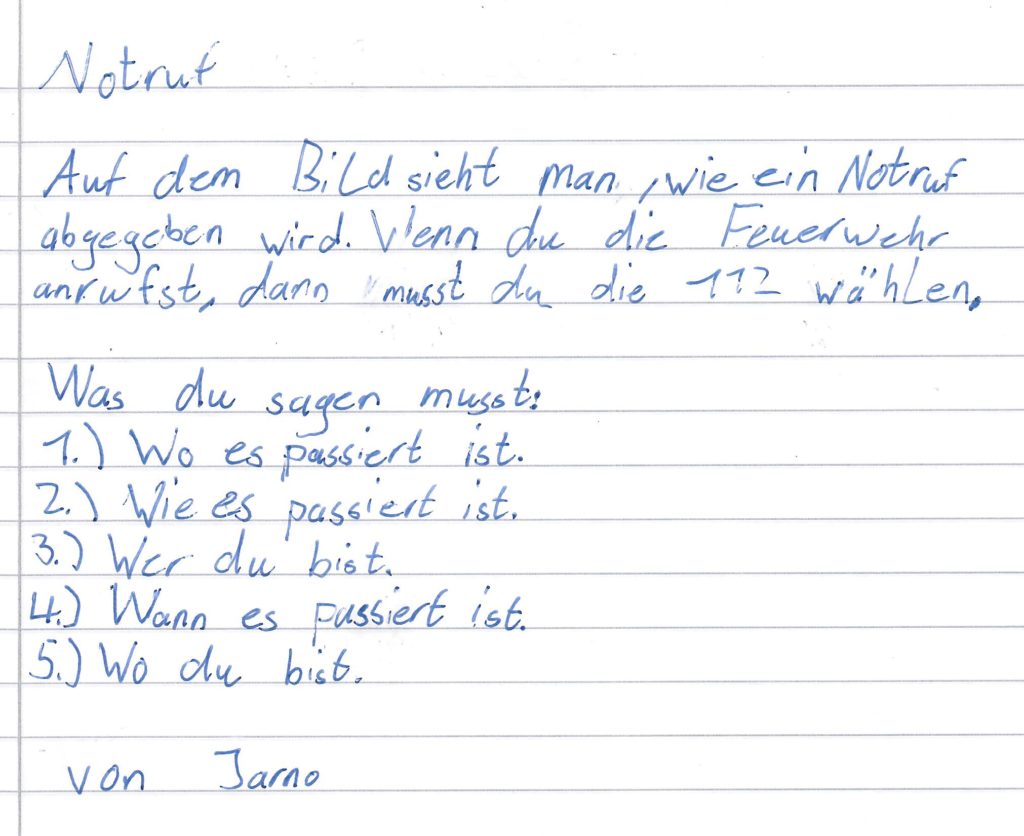 Notruf
Auf dem Bild sieht man, wie ein Notruf
abgegeben wird. Wenn du die Feuerwehr
anrufst, dann musst du die 112 wählen.
Was du sagen musst:
1.) Wo es passiert ist.
2.) Wie es passiert ist.
3.) Wer du bist.
4.) Wann es passiert ist.
5.) Wo du bist.
von Jarno